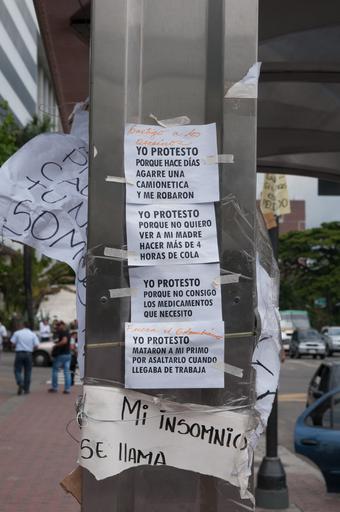 Castigo a los
YO PROTESTO
PORQUE HACE DÍAS
AGARRE UNA
CAMIONETICA
Y ME ROBARON
YO PROTESTO
PORQUE NO QUIERO
VER A MI MADRE
HACER MÁS DE 4
HORAS DE COLA
YO PROTESTO
PORQUE NO CONSIGO
LOS MEDICAMENTOS
QUE NECESITO
Fuera el
YO PROTESTO
MATARON A MI PRIMO
POR ASALTARLO CUANDO
LLEGABA DE TRABAJA
Mi iNSOMNiO
SE llAMA